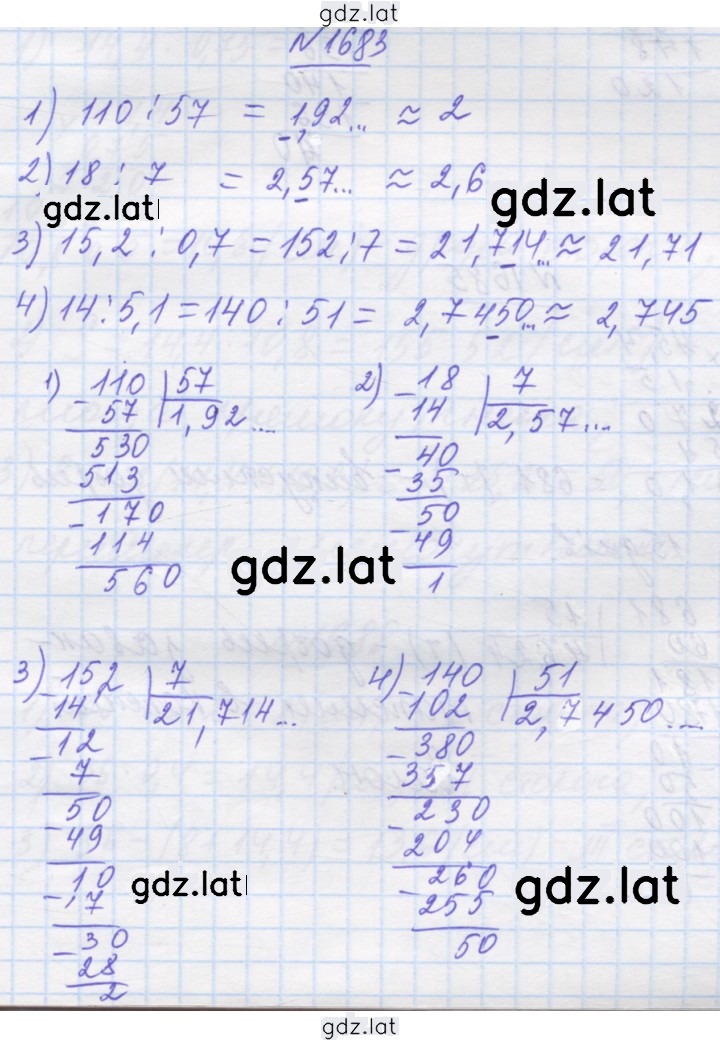 gdz.lat
№1683
1) 110 : 57 = 1,92... ≈ 2
2) 18 : 7 = 2,57... ≈ 2,6
gdz.lat gdz.lat
3) 15,2 : 0,7 = 152 : 7 = 21,714... ≈ 21,71
4) 14 : 5,1 = 140 : 51 = 2,7450... ≈ 2,745
1) - 110 | 57 2) - 18 | 7
57 1,92... 14 2,57...
530 - 40
513 35
- 170 - 50
114 49
560 1
gdz.lat
3) - 152 | 7 4) - 140 | 51
14 21,714... 102 2,7450...
- 12 - 380
7 357
- 50 - 230
49 204
- 10 - 260
7 255
- 30 50
28
2
gdz.lat gdz.lat
gdz.lat